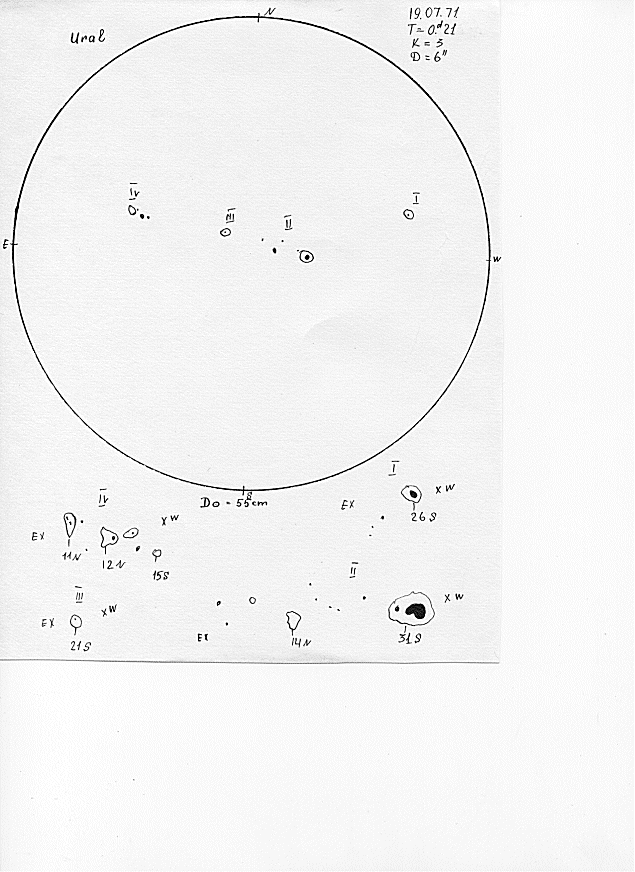 Ural
N
19.07.71
T = 0.ᵈ21
K = 3
D = 6"
IV
III
II
I
E
W
S
D₀ - 55cm
I
EX
XW
26S
IV
EX
XW
11N
12N
15S
II
EX
XW
14N
31S
III
EX
XW
21S